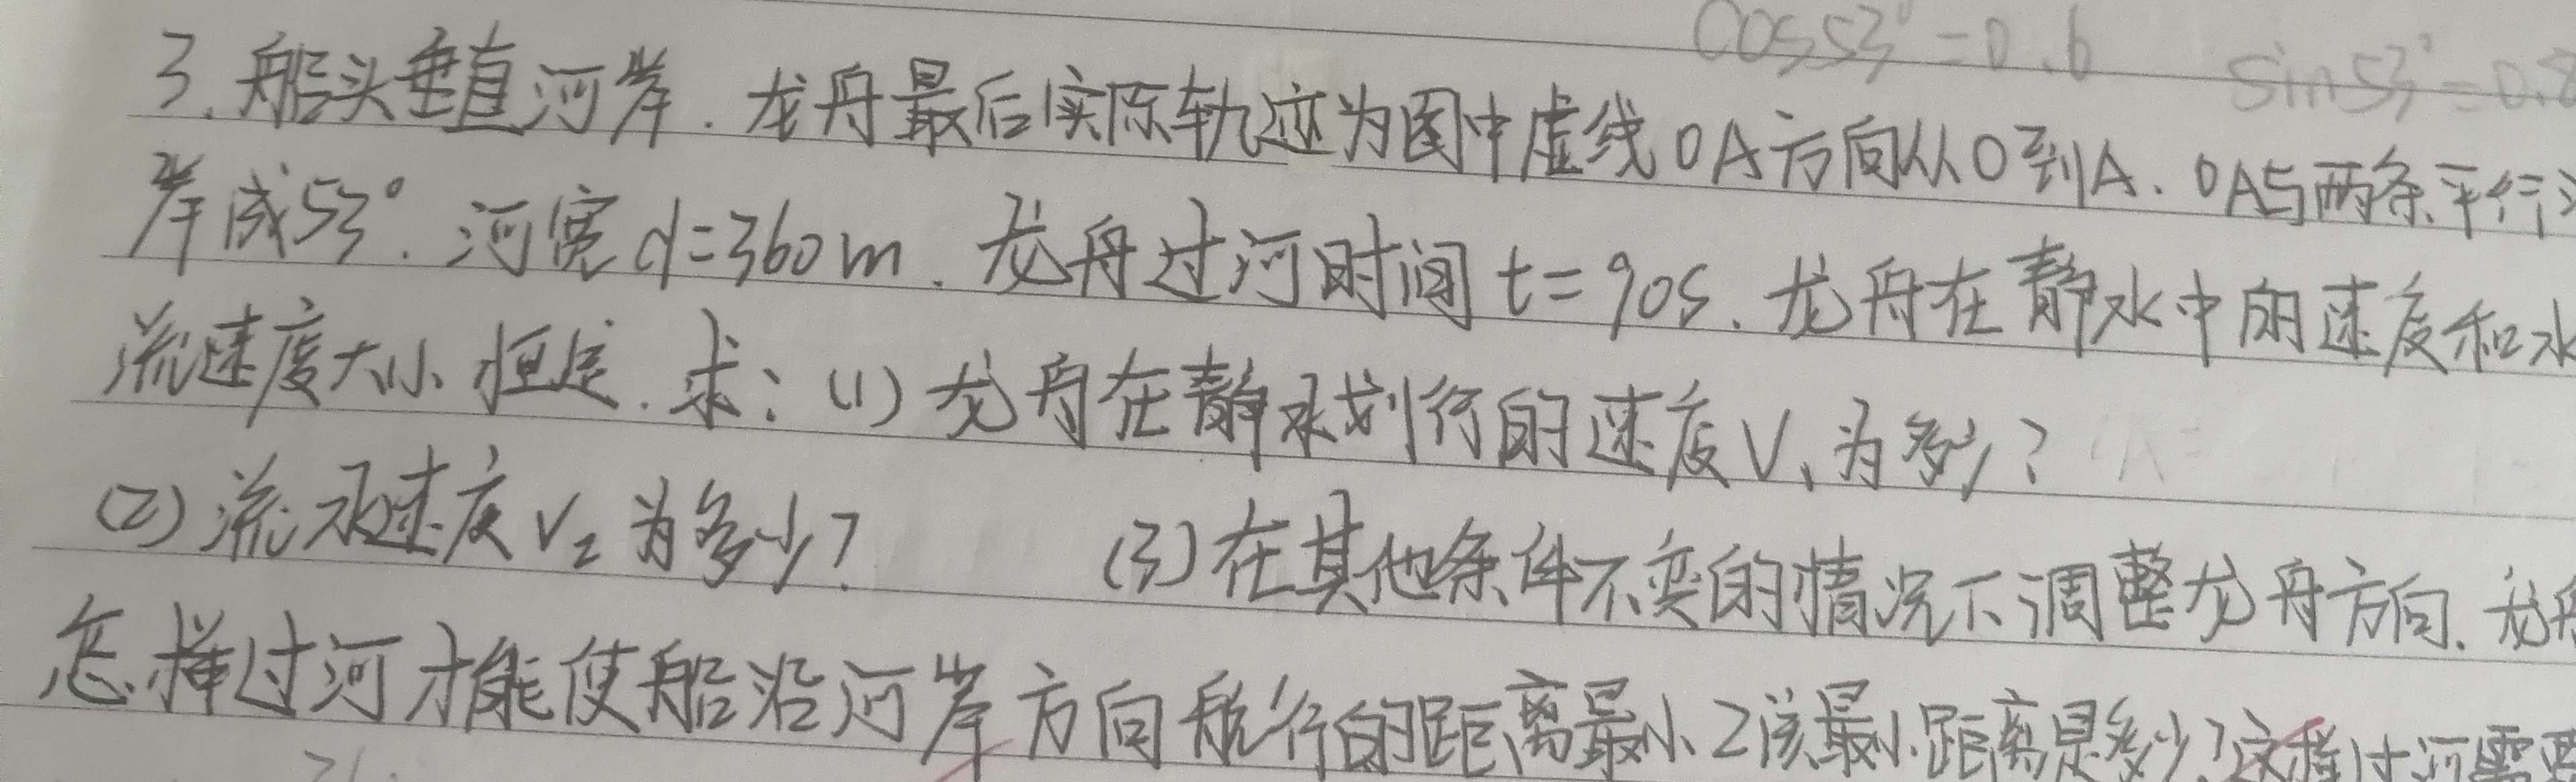 cos53°=0.6 sin53°=0.8
3.船头垂直河岸.龙舟最后实际轨迹为图中虚线OA方向从O到A.OA与两条平行
岸成53°.河宽d=360m.龙舟过河时间t=90s.龙舟在静水中的速度和水
流速度大小恒定.求:(1)龙舟在静水划行的速度V₁为多少?
(2)流水速度V₂为多少? (3)在其他条件不变的情况下调整龙舟方向.龙舟
怎样过河才能使船沿河岸方向航行的距离最小?该最小距离是多少?这样过河需要